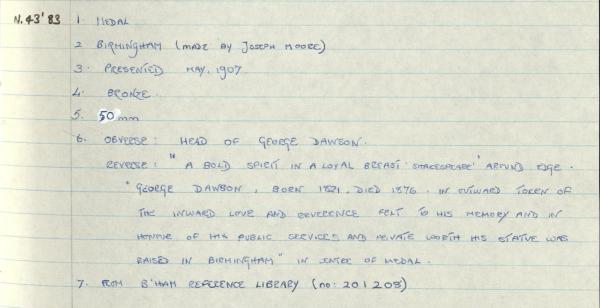 N.43'83 1. MEDAL
2 BIRMINGHAM (MADE BY JOSEPH MOORE)
3. PRESENTED MAY, 1907
4. BRONZE.
5. 50mm
6. OBVERSE: HEAD OF GEORGE DAWSON.
REVERSE: "A BOLD SPIRIT IN A LOYAL BREAST 'SHAKESPEARE'" AROUND EDGE.
"GEORGE DAWSON, BORN 1821, DIED 1876. IN OUTWARD TOKEN OF
THE INWARD LOVE AND REVERENCE FELT TO HIS MEMORY AND IN
HONOUR OF HIS PUBLIC SERVICES AND PRIVATE WORTH HIS STATUE WAS
RAISED IN BIRMINGHAM" IN CENTRE OF MEDAL.
7. FROM B'HAM REFERENCE LIBRARY (no: 201208)